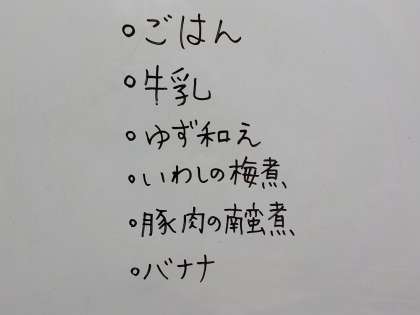 ○ごはん
○牛乳
○ゆず和え
○いわしの梅煮
○豚肉の南蛮煮
○バナナ